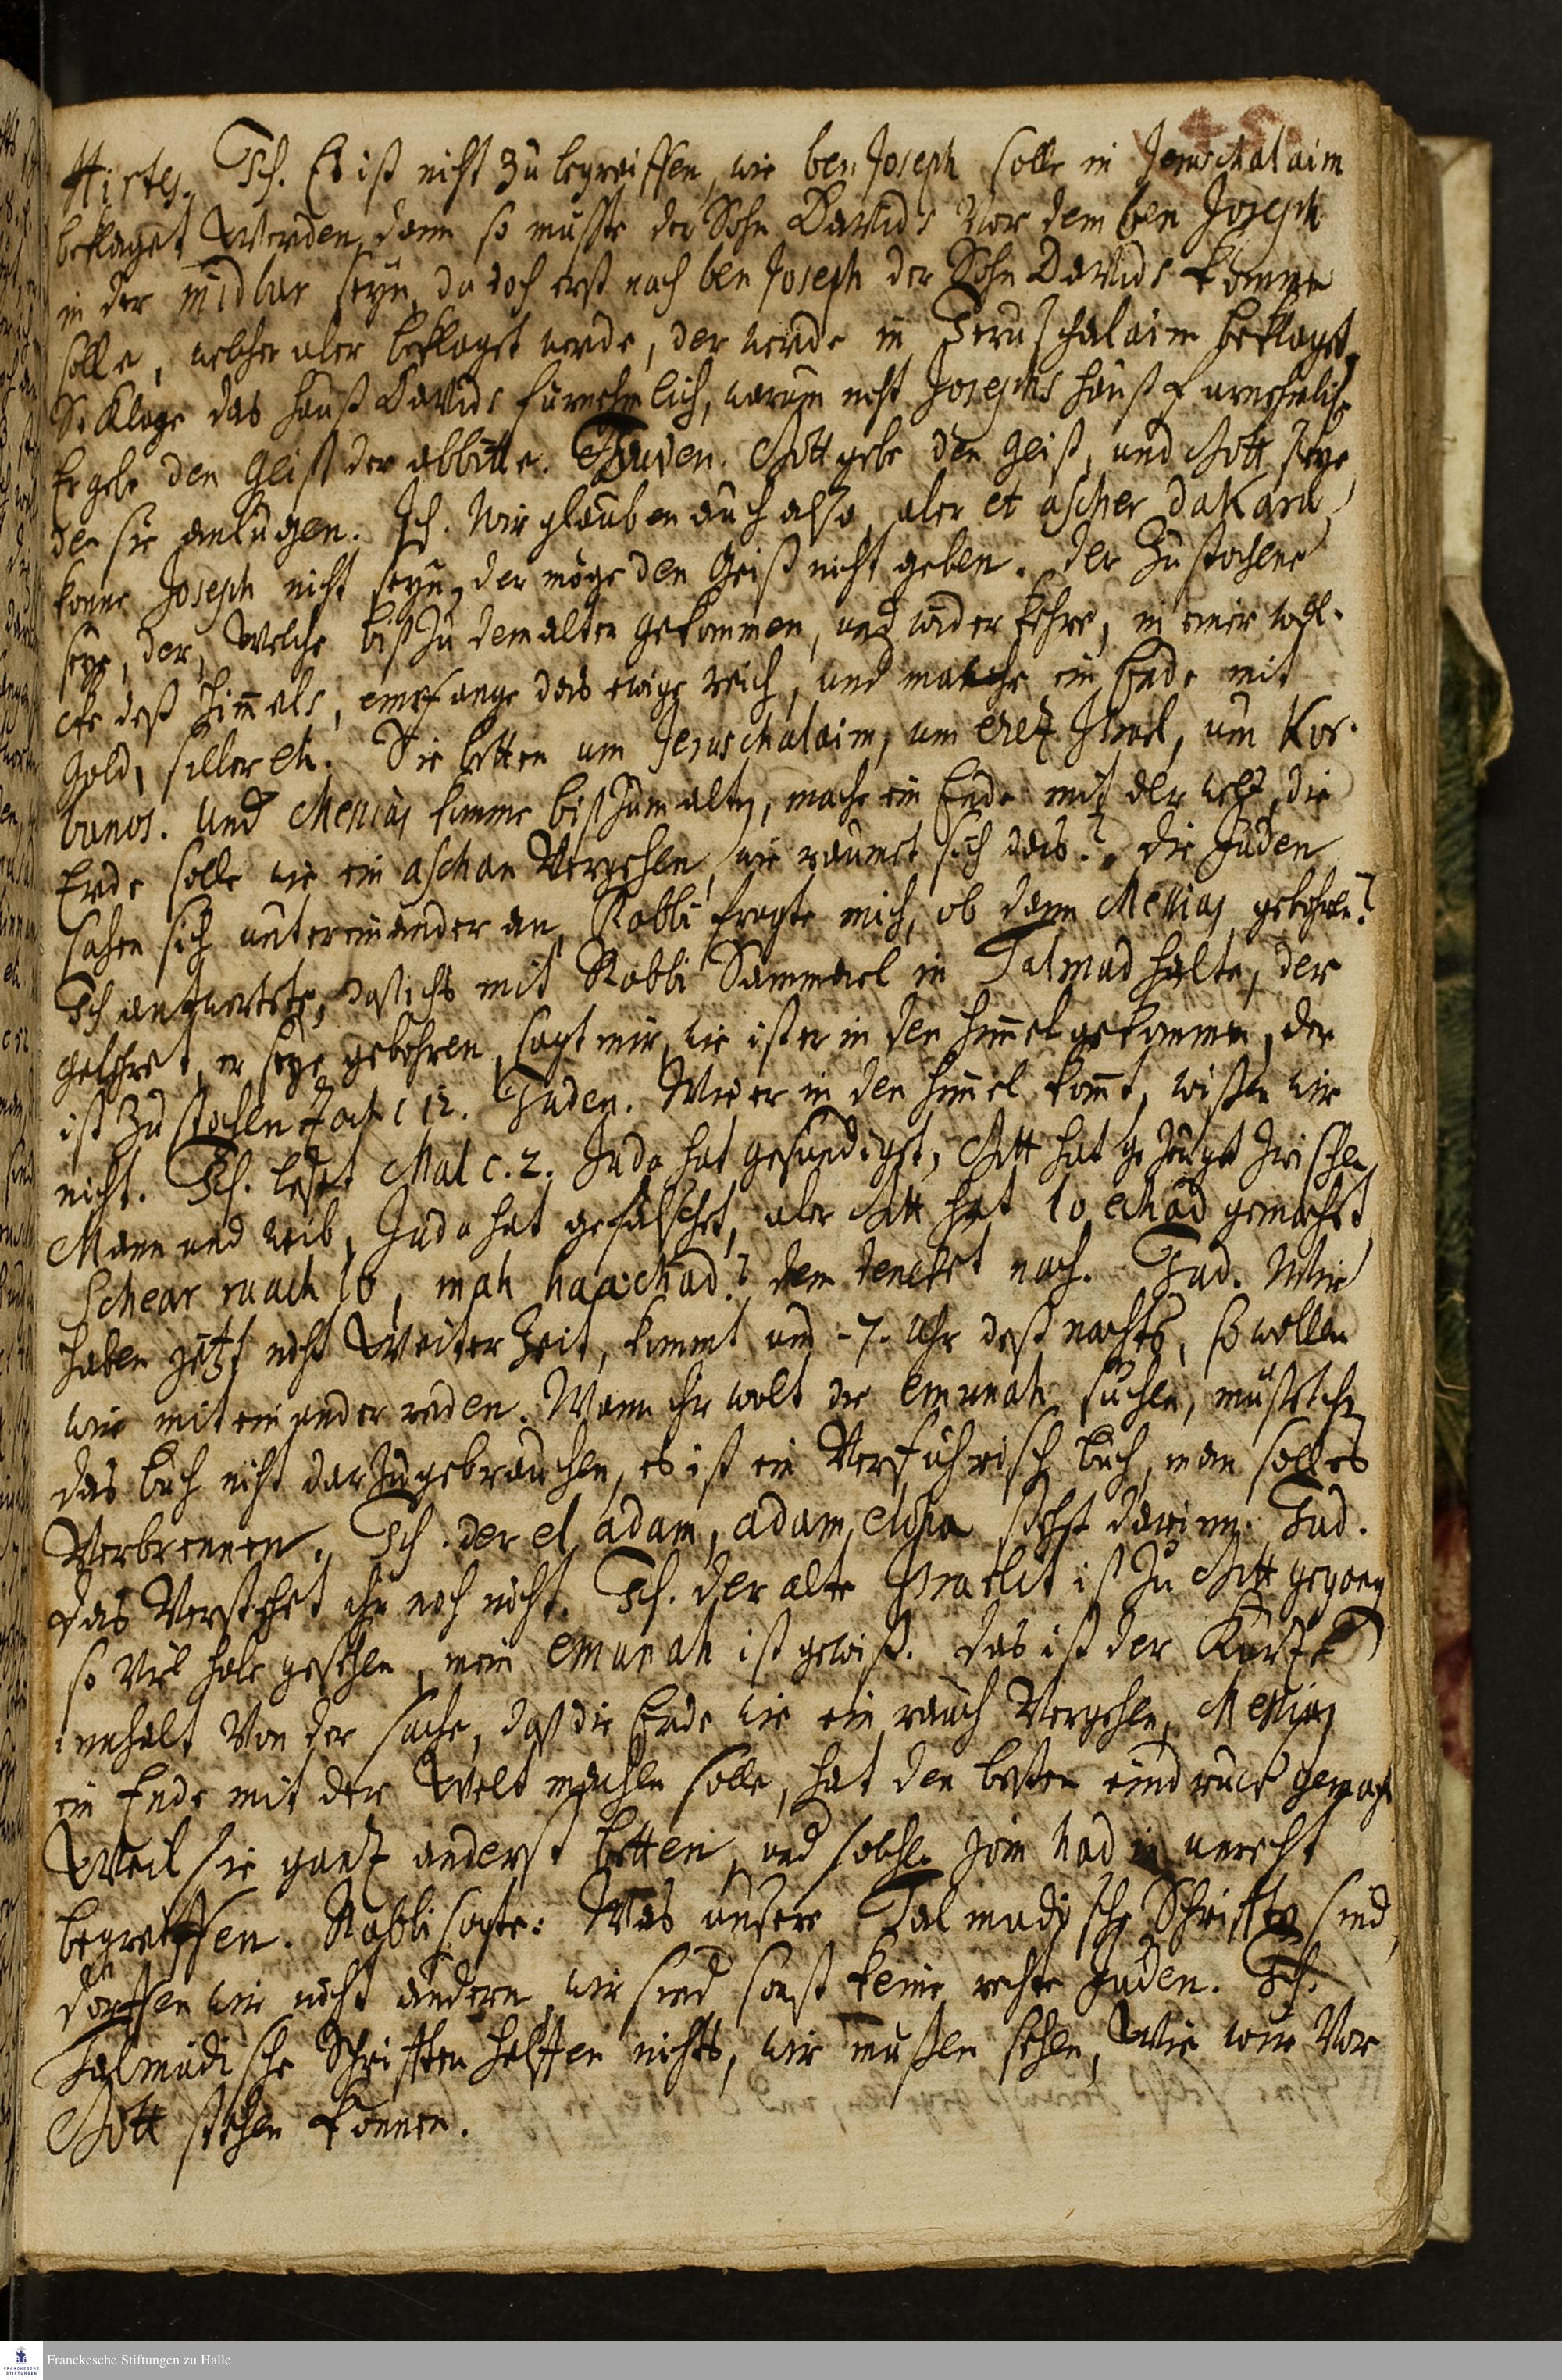 45.
Hirtes. Ich. Es ist nicht zu begreiffen, wie ben Joseph solle in Jeruschalaim
beklaget Werden, dann so muste der Sohn Davids Vor dem ben Joseph
in der midbar seyn, da doch erst nach ben Joseph der Sohn Davids komme
solle, welcher aber beklaget werde, der werde in Jeruschalaim beklaget,
So Klage das Hauß Davids fürnehmlich, warum nicht Josephs Hauß furnehmlich
Er gebe den Geist der abbitte. Juden. Gott gebe den Geist, und Gott seye
den sie anlugen. Ich. Wir glauben auch also, aber et ascher dakaru,
könne Joseph nicht seyn, der möge den Geist nicht geben. der Zustochene
seye, der, Welche biß zu dem alten gekommen, und wider kehre, in einer wol-
cke deß Him̄els, empfange das ewige reich, und mache ein Ende mit
Gold, silber etc. Sie betten um Jeruschalaim, um erez Israel, um Kor-
banos. Und Messias komme biß zum alten, mache ein Ende mit der welt, die
Erde solle wie ein aschan Vergehen, wie raumet sich das? die Juden
sahen sich untereinander an, Rabbi fragte mich, ob dann Messias gebohren?
Ich antwortete, daß ichs mit Rabbi Sammael in Talmud halte, der
gelehret, er seye gebohren, sagt mir, wie ist er in den Him̄el gekommen, der
ist zustochen Zach c 12. Juden. Wie er in den him̄el kom̄t, wissen wir
nicht. Ich. leset Mal c. 2. Juda hat gesundiget, Gott hat gezeuget zwischen
Mann und weib, Juda hat gefälschet, aber Gott hat lo echad gemacht
Schear ruach lo, mah haachad? dem dencket nach. Jud. Wir
haben jetzt nicht Weiter Zeit, kommt um -7. Uhr deß nachts, so wollen
wir mit einander reden. Wann ihr wolt die emunah suchen, müsset ihr
das buch nicht darzu gebrauchen, es ist ein Verführisch buch, man soll es
Verbrennen. Ich. der el adam, adam eloha stehet darinn. Jud.
das Verstehet ihr noch nicht. Ich. der alte Israelit ist zu Gott gegang
so Viel habe gesehen, mein emunah ist gewiß. das ist der Kurtze
innhalt Von der sache, daß die Erde wie ein rauch Vergehen, Messias
ein Ende mit der Welt machen solle, hat den besten eindruck gemacht
Weil sie gantz anderst betten, und solche unrecht
begreiffen. Rabbi sagte: Was unsere Talmudische Schrifften sind,
dorffen wir nicht andern, wir sind sonst keine rechte Juden. Ich.
Talmudische Schrifften helffen nichts, wir mußen sehen, Wie wir Vor
Gott stehen konnen.
Franckesche Stiftungen zu Halle